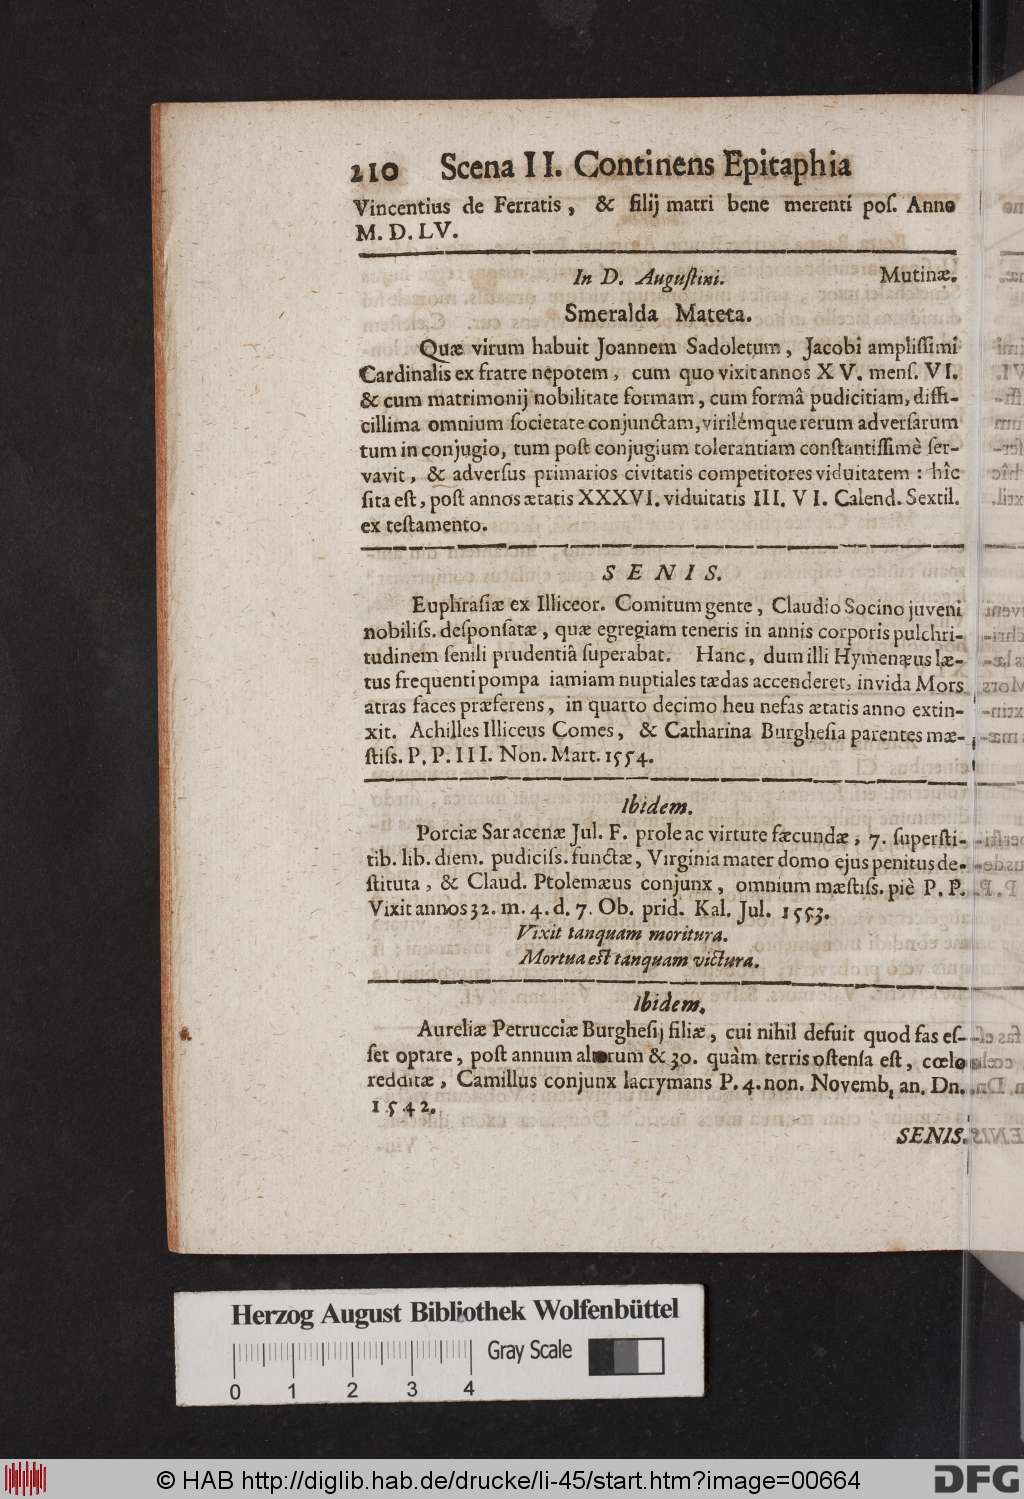 210 Scena II. Continens Epitaphia
Vincentius de Ferratis, & filij matri bene merenti poſ. Anno
M. D. LV.
In D. Auguſtini. Mutinæ.
Smeralda Mateta.
Quæ virum habuit Joannem Sadoletum, Jacobi ampliſſimi
Cardinalis ex fratre nepotem, cum quo vixit annos XV. menſ. VI.
& cum matrimonij nobilitate formam, cum formâ pudicitiam, diffi-
cillima omnium ſocietate conjunctam, virilémque rerum adverſarum
tum in conjugio, tum poſt conjugium tolerantiam conſtantiſſimè ſer-
vavit, & adverſus primarios civitatis competitores viduitatem : hîc
ſita eſt, poſt annos ætatis XXXVI. viduitatis III. VI. Calend. Sextil.
ex teſtamento.
SENIS.
Euphraſiæ ex Illiceor. Comitum gente, Claudio Socino juveni
nobiliſs. deſponſatæ, quæ egregiam teneris in annis corporis pulchri-
tudinem ſenili prudentiâ ſuperabat. Hanc, dum illi Hymenæus læ-
tus frequenti pompa iamiam nuptiales tædas accenderet, invida Mors
atras faces præferens, in quarto decimo heu nefas ætatis anno extin-
xit. Achilles Illiceus Comes, & Catharina Burgheſia parentes mæ-
ſtiſs. P. P. III. Non. Mart. 1554.
Ibidem.
Porciæ Saracenæ Jul. F. prole ac virtute fæcundæ, 7. ſuperſti-
tib. lib. diem. pudiciſs. functæ, Virginia mater domo ejus penitus de-
ſtituta, & Claud. Ptolemæus conjunx, omnium mæſtiſs. piè P. P.
Vixit annos 32. m. 4. d. 7. Ob. prid. Kal. Jul. 1553.
Vixit tanquam moritura.
Mortua eſt tanquam victura.
Ibidem.
Aureliæ Petrucciæ Burgheſij filiæ, cui nihil defuit quod fas eſ-
ſet optare, poſt annum alterum & 30. quàm terris oſtenſa eſt, cœlo
redditæ, Camillus conjunx lacrymans P. 4. non. Novemb. an. Dn.
1542.
SENIS.
Herzog August Bibliothek Wolfenbüttel
Gray Scale
0 1 2 3 4
© HAB http://diglib.hab.de/drucke/li-45/start.htm?image=00664
DFG